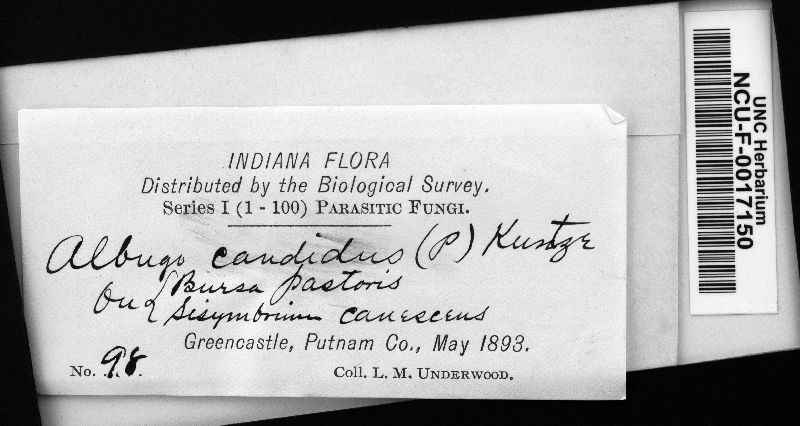 INDIANA FLORA
Distributed by the Biological Survey.
Series I (1 - 100) PARASITIC FUNGI.
Albugo candidus (P) Kuntze
On { Bursa pastoris
Sisymbrium canescens
Greencastle, Putnam Co., May 1893.
No. 98.
Coll. L. M. UNDERWOOD.
UNC Herbarium
NCU-F-0017150